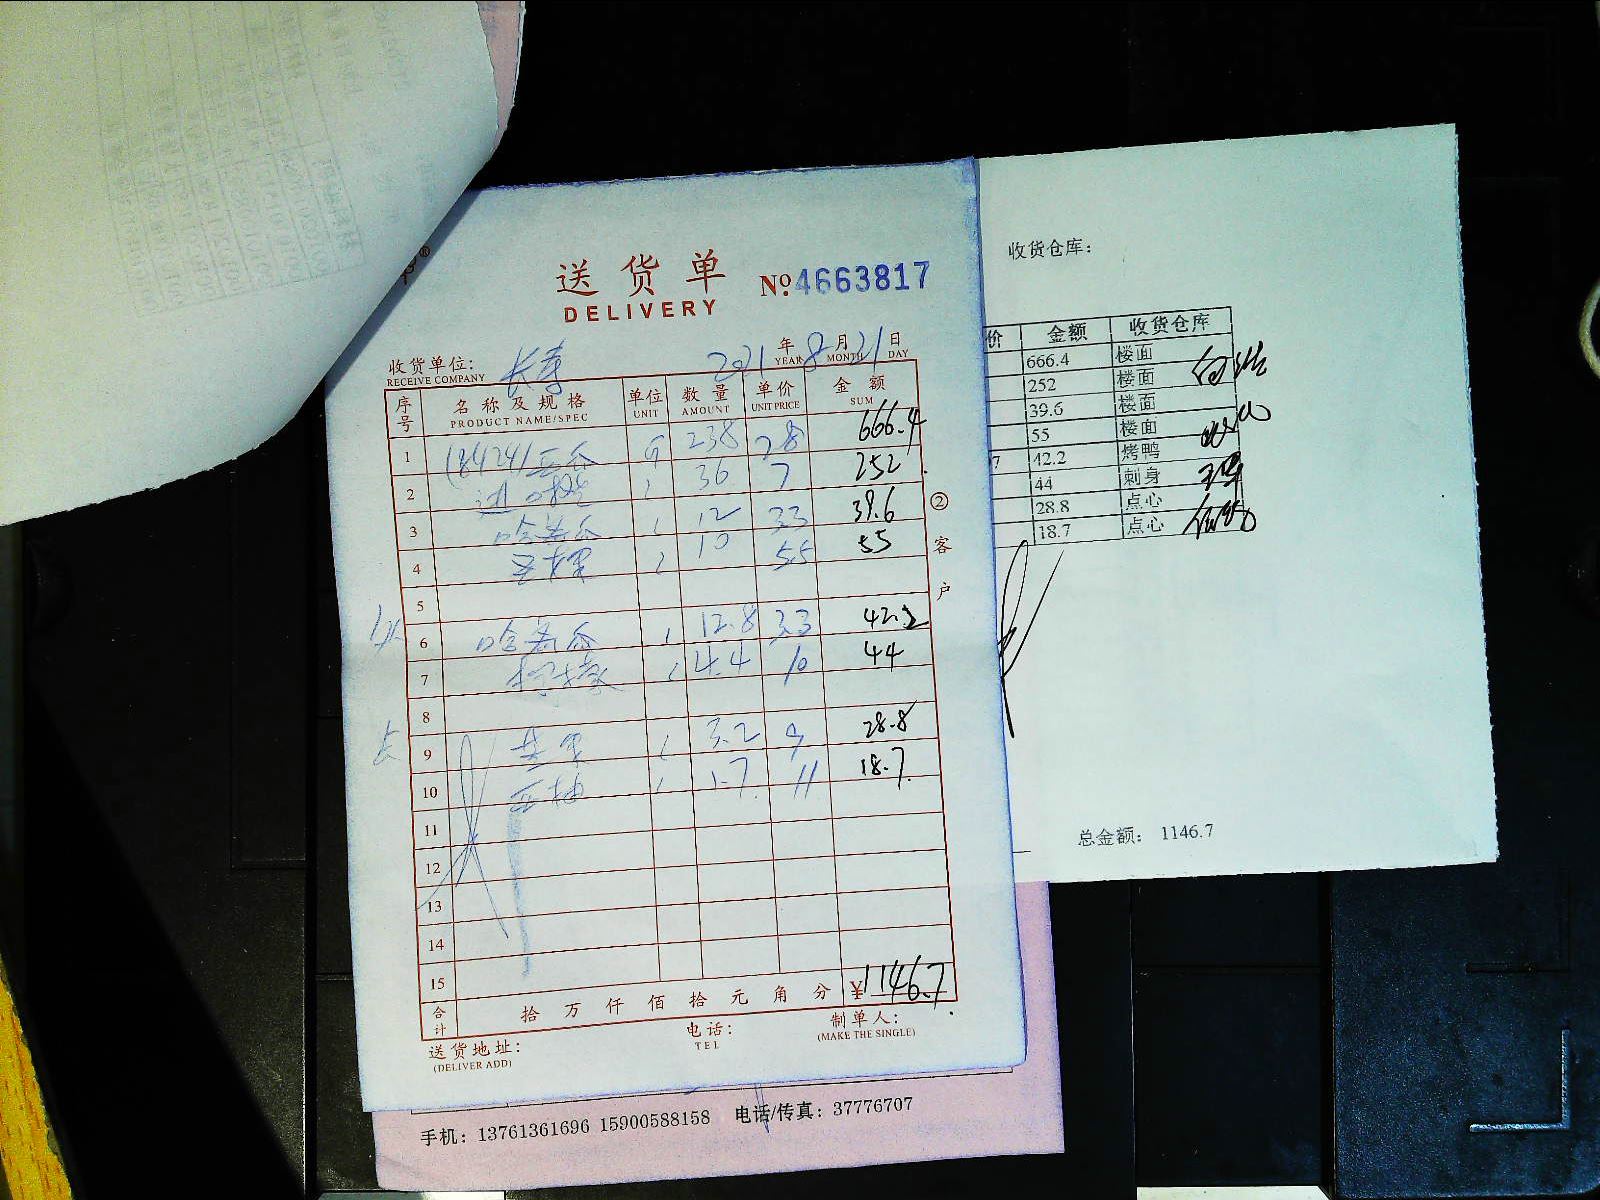 送货单
№ 4663817
DELIVERY
收货单位: 长寿
RECEIVE COMPANY
2021年8月21日
YEAR MONTH DAY
序号 名称及规格 单位 数量 单价 金额
PRODUCT NAME/SPEC UNIT AMOUNT UNIT PRICE SUM
1 238 28 666.4
2 36 7 252
3 哈密瓜 12 33 39.6
4 10 55 55
5
6 哈密瓜 12.8 33 42.2
7 4.4 10 44
8
9 3.2 9 28.8
10 1.7 11 18.7
11
12
13
14
15
合计 拾万仟佰拾元角分 ¥1146.7
②客户
送货地址:
(DELIVER ADD)
电话:
TEL
制单人:
(MAKE THE SINGLE)
手机: 13761361696 15900588158 电话/传真: 37776707
收货仓库:
价 金额 收货仓库
666.4 楼面
252 楼面
39.6 楼面
55 楼面
7 42.2 烤鸭
44 刺身
28.8 点心
18.7 点心
总金额: 1146.7